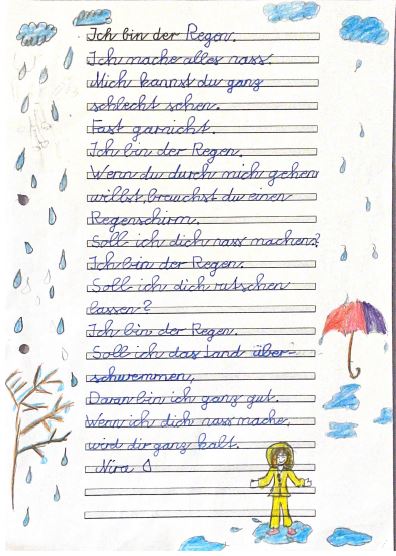 Ich bin der Regen.
Ich mache alles nass.
Mich kannst du ganz
schlecht sehen.
Fast garnicht.
Ich bin der Regen.
Wenn du durch mich gehen
willst, brauchst du einen
Regenschirm.
Soll ich dich nass machen?
Ich bin der Regen.
Soll ich dich rutschen
lassen?
Ich bin der Regen.
Soll ich das Land über-
schwemmen,
Daran bin ich ganz gut.
Wenn ich dich nass mache,
wird dir ganz kalt.
Nira